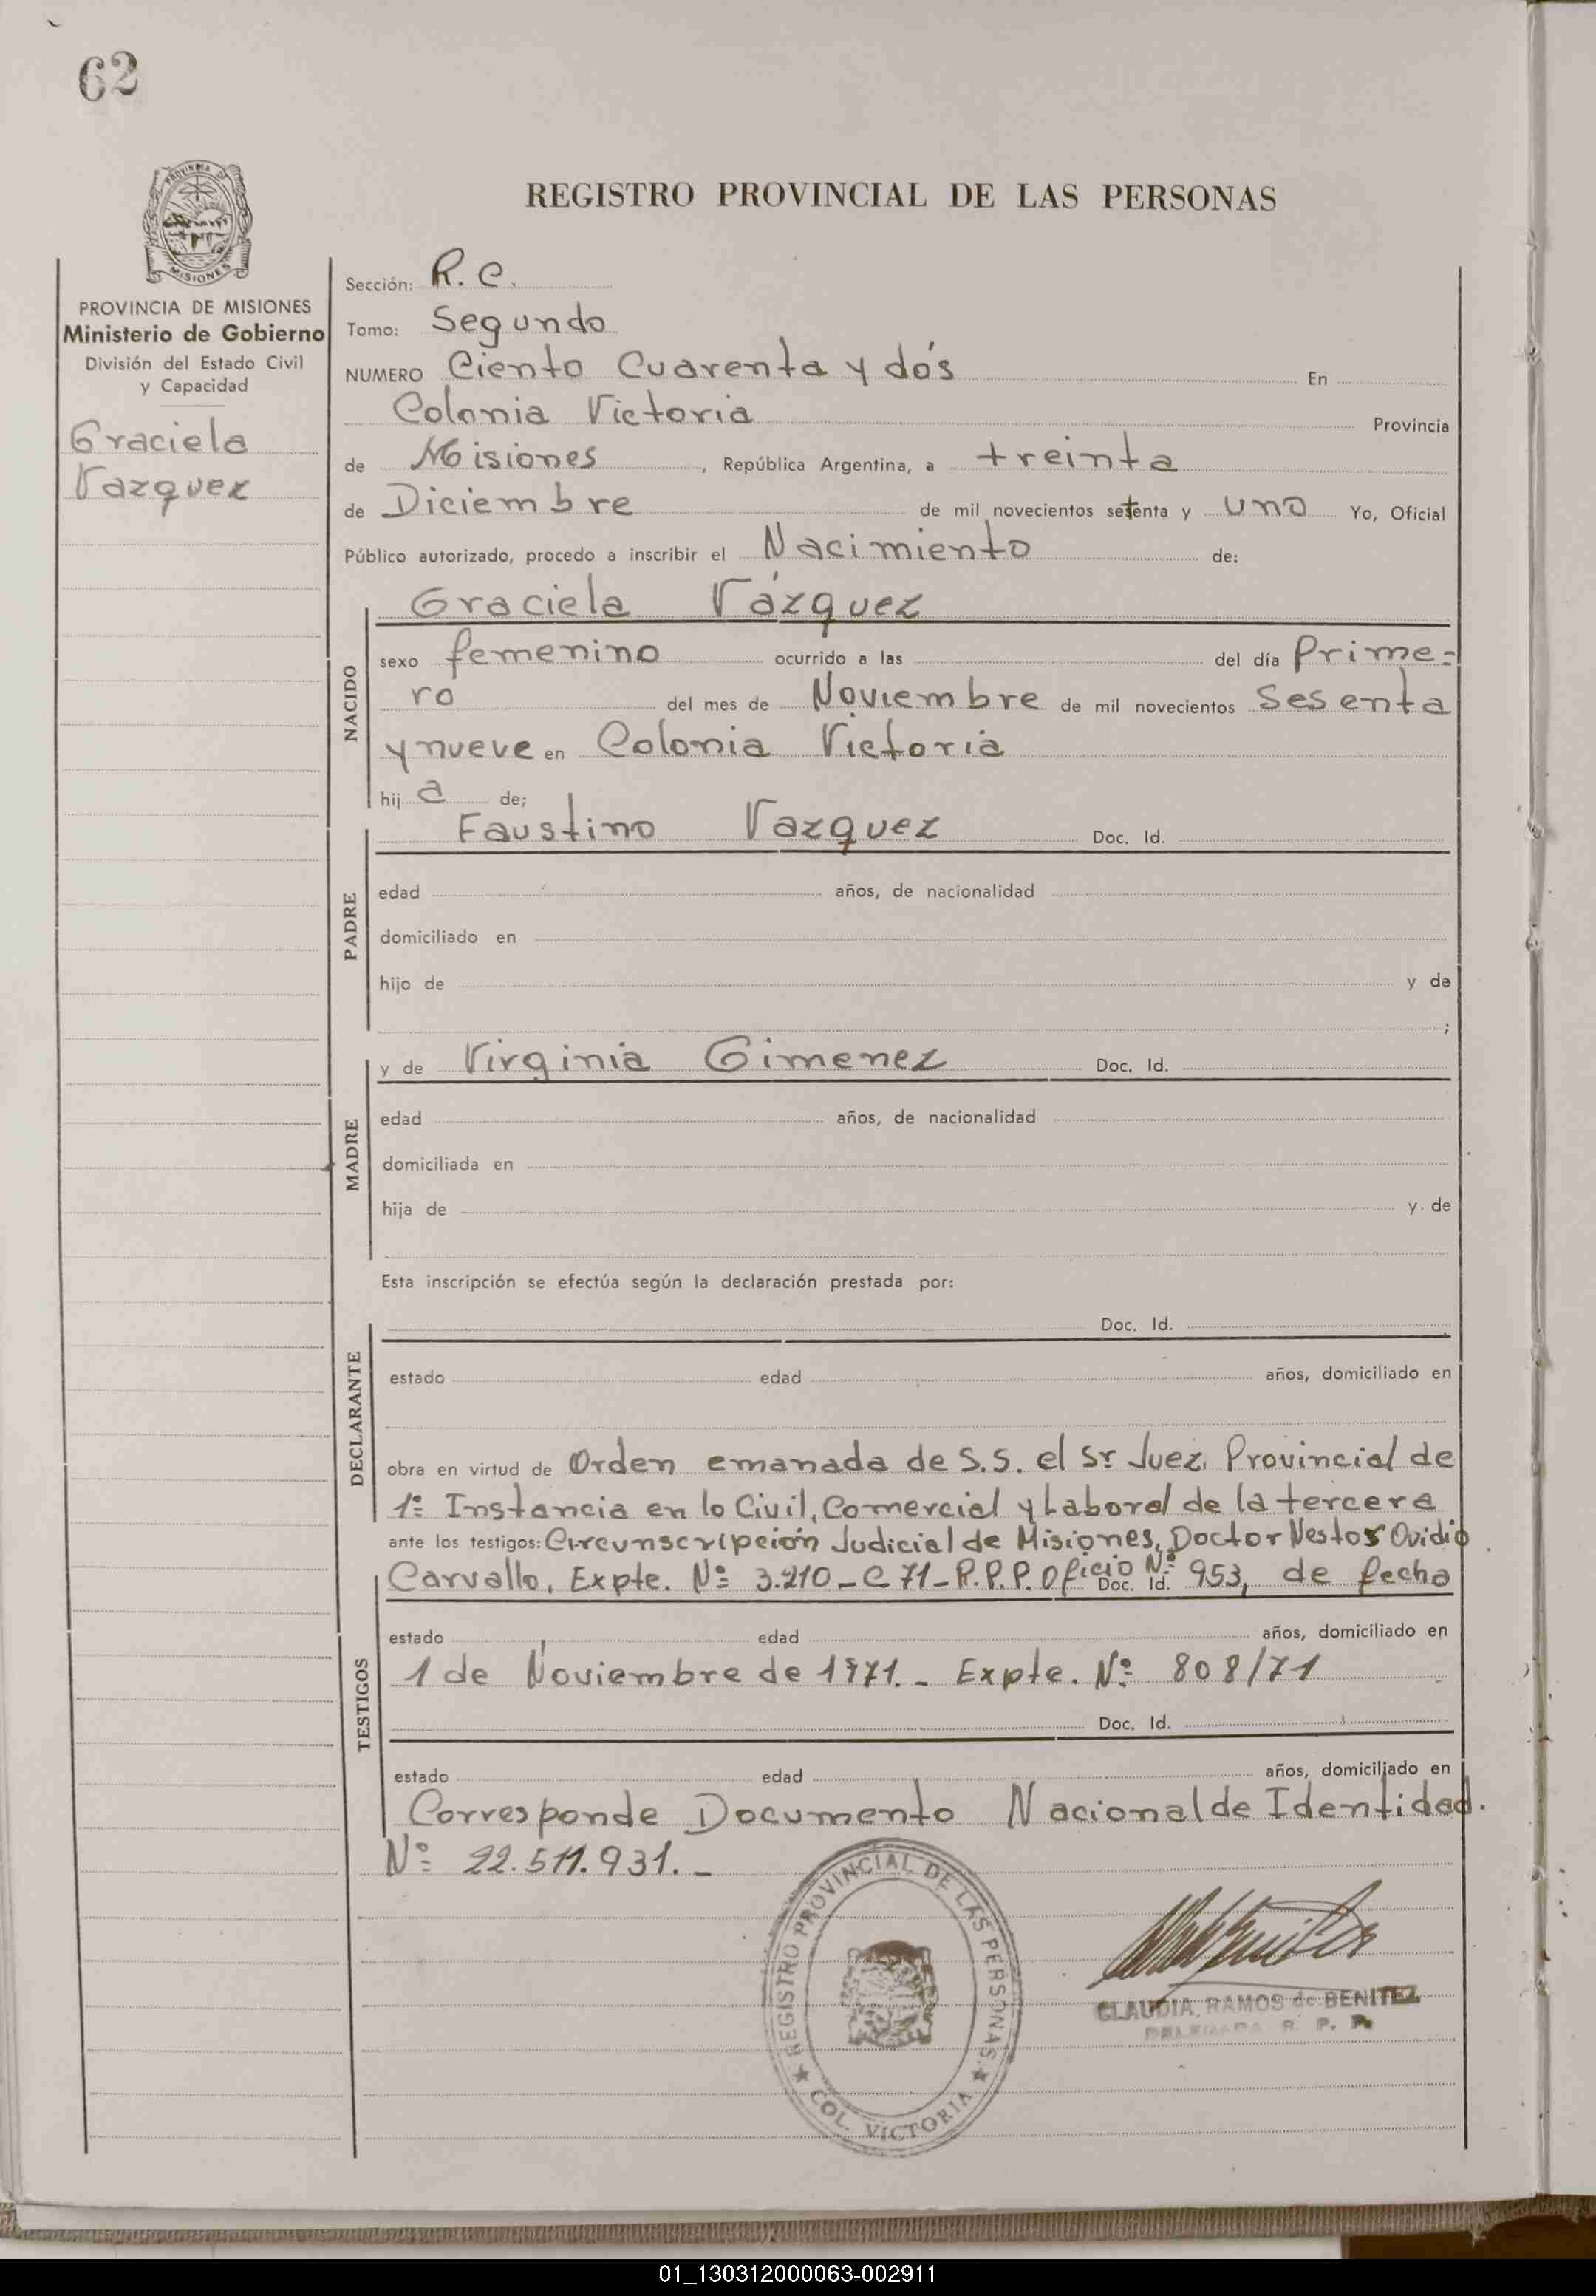 62
PROVINCIA DE
MISIONES
REGISTRO PROVINCIAL DE LAS PERSONAS
PROVINCIA DE MISIONES
Ministerio de Gobierno
División del Estado Civil
y Capacidad
Graciela
Vazquez
Sección: R. C.
Tomo: Segundo
NUMERO Ciento Cuarenta y dós En
Colonia Victoria Provincia
de Misiones, República Argentina, a treinta
de Diciembre de mil novecientos setenta y uno Yo, Oficial
Público autorizado, procedo a inscribir el Nacimiento de:
Graciela Vázquez
NACIDO
sexo femenino ocurrido a las del día Prime=
ro del mes de Noviembre de mil novecientos Sesenta
y nueve en Colonia Victoria
hij a de;
Faustino Vazquez Doc. Id.
PADRE
edad años, de nacionalidad
domiciliado en
hijo de y de
;
y de Virginia Gimenez Doc. Id.
MADRE
edad años, de nacionalidad
domiciliada en
hija de y de
Esta inscripción se efectúa según la declaración prestada por:
Doc. Id.
DECLARANTE
estado edad años, domiciliado en
obra en virtud de Orden emanada de S.S. el Sr Juez Provincial de
1º Instancia en lo Civil, Comercial y Laboral de la tercera
ante los testigos: Circunscripción Judicial de Misiones, Doctor Nestor Ovidio
Carvallo, Expte. Nº 3.210-C 71-R.P.P. Oficio Nº 953, de fecha
Doc. Id.
TESTIGOS
estado edad años, domiciliado en
1 de Noviembre de 1971.- Expte. Nº 808/71
Doc. Id.
estado edad años, domiciliado en
Corresponde Documento Nacional de Identidad.
Nº 22.511.931.-
REGISTRO PROVINCIAL DE LAS PERSONAS
COL. VICTORIA
CLAUDIA RAMOS de BENITEZ
DELEGADA R. P. P.
01_130312000063-002911